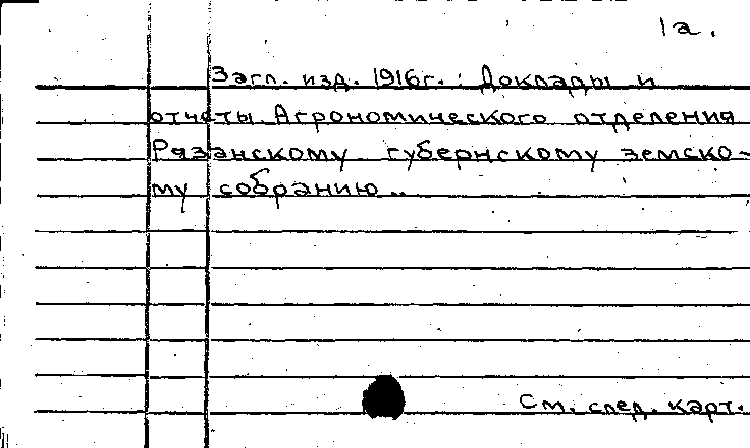 1а.
Загл. изд. 1916г.: Доклады и
отчеты Агрономического отделения
Рязанскому губернскому земско-
му собранию..
См. след. карт.